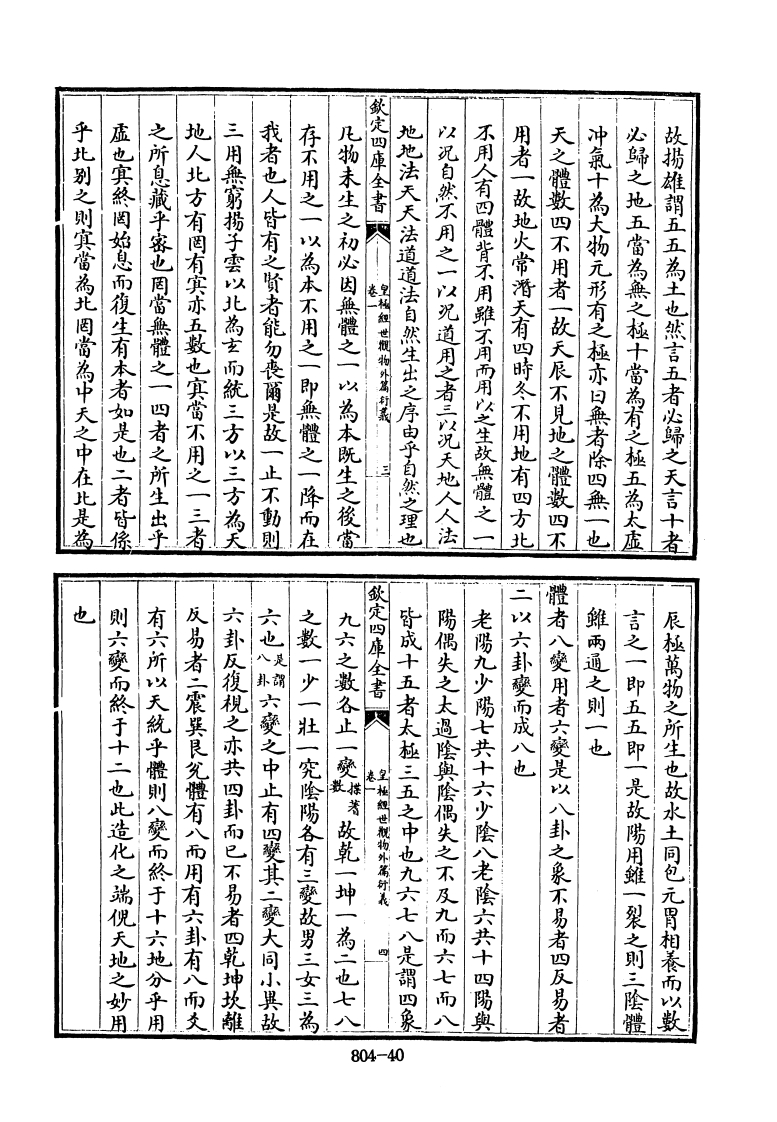 故揚雄謂五五為土也然言五者必歸之天言十者
必歸之地五當為無之極十當為有之極五為太虛
冲氣十為大物元形有之極亦曰無者除四無一也
天之體數四不用者一故天辰不見地之體數四不
用者一故地火常潛天有四時冬不用地有四方北
不用人有四體背不用雖不用而用以之生故無體之一
以況自然不用之一以況道用之者三以況天地人人法
地地法天天法道道法自然生出之序由乎自然之理也
欽定四庫全書
皇極經世觀物外篇衍義
卷一
三
凡物未生之初必因無體之一以為本既生之後當
存不用之一以為本不用之一即無體之一降而在
我者也人皆有之賢者能勿喪爾是故一止不動則
三用無窮揚子雲以北為玄而統三方以三方為天
地人北方有罔有冥亦五數也冥當不用之一三者
之所息藏乎密也罔當無體之一四者之所生出乎
虛也冥終罔始息而復生有本者如是也二者皆係
乎北别之則冥當為北罔當為中天之中在北是為
辰極萬物之所生也故水土同包元胃相養而以數
言之一即五五即一是故陽用雖一裂之則三陰體
雖兩通之則一也
體者八變用者六變是以八卦之象不易者四反易者
二以六卦變而成八也
老陽九少陽七共十六少陰八老陰六共十四陽與
陽偶失之太過陰與陰偶失之不及九而六七而八
皆成十五者太極三五之中也九六七八是謂四象
欽定四庫全書
皇極經世觀物外篇衍義
卷一
四
九六之數各止一變揲蓍數故乾一坤一為二也七八
之數一少一壯一究陰陽各有三變故男三女三為
六也是謂八卦六變之中止有四變其二變大同小異故
六卦反復視之亦共四卦而已不易者四乾坤坎離
反易者二震巽艮兊體有八而用有六卦有八而爻
有六所以天統乎體則八變而終于十六地分乎用
則六變而終于十二也此造化之端倪天地之妙用
也
804-40